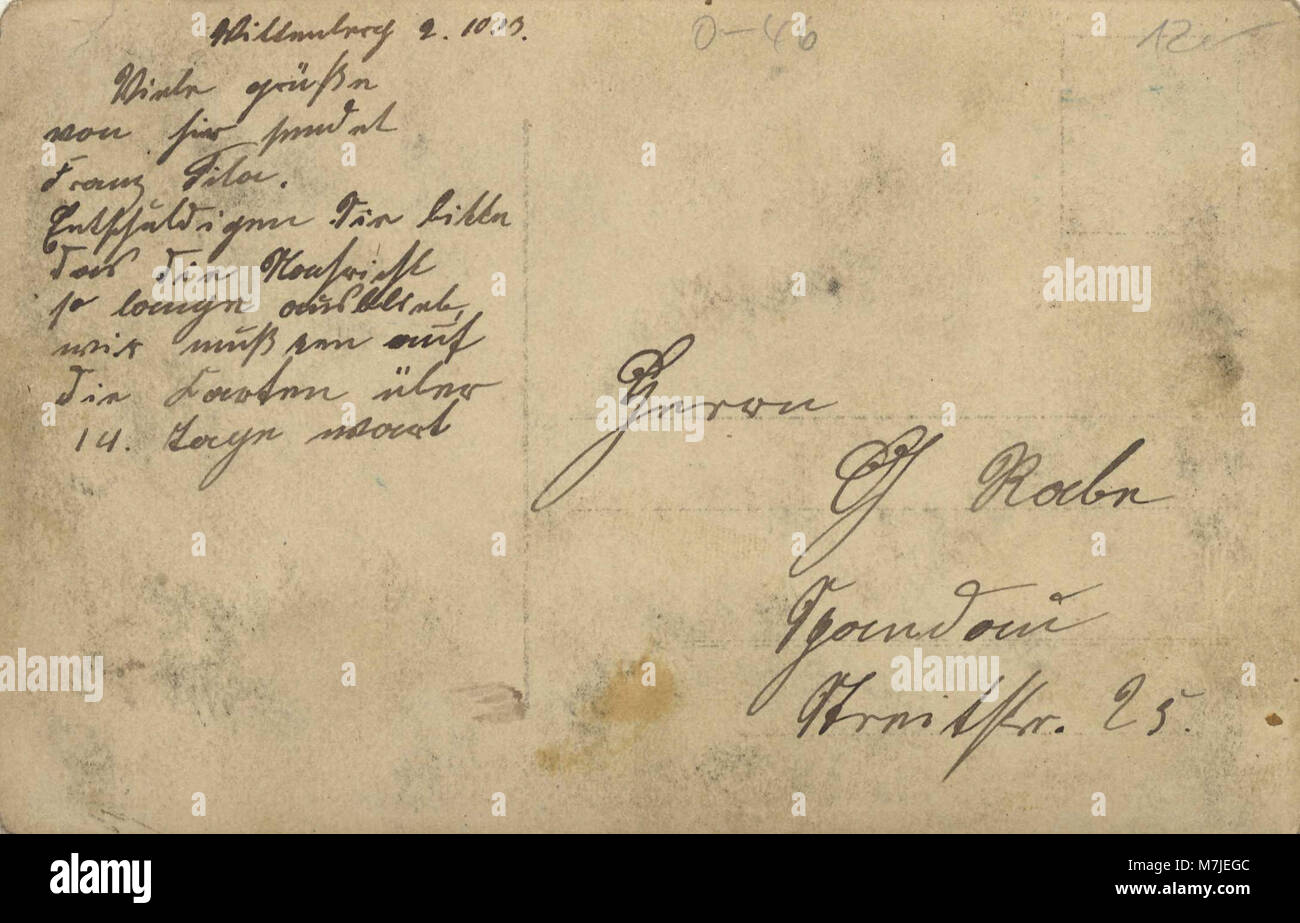 Wittenberg 2. 10
0-46
12
Viele grüße
von hir sendet
Franz
Entschuldigen Sie bitte
das die Nachricht
so lange ausblieb,
wir mußten auf
die Karten über
14. Tage wart
Herrn
Rabe
Spandau
Streitstr. 25.
alamy
a
alamy
Image ID: M7JEGC
www.alamy.com